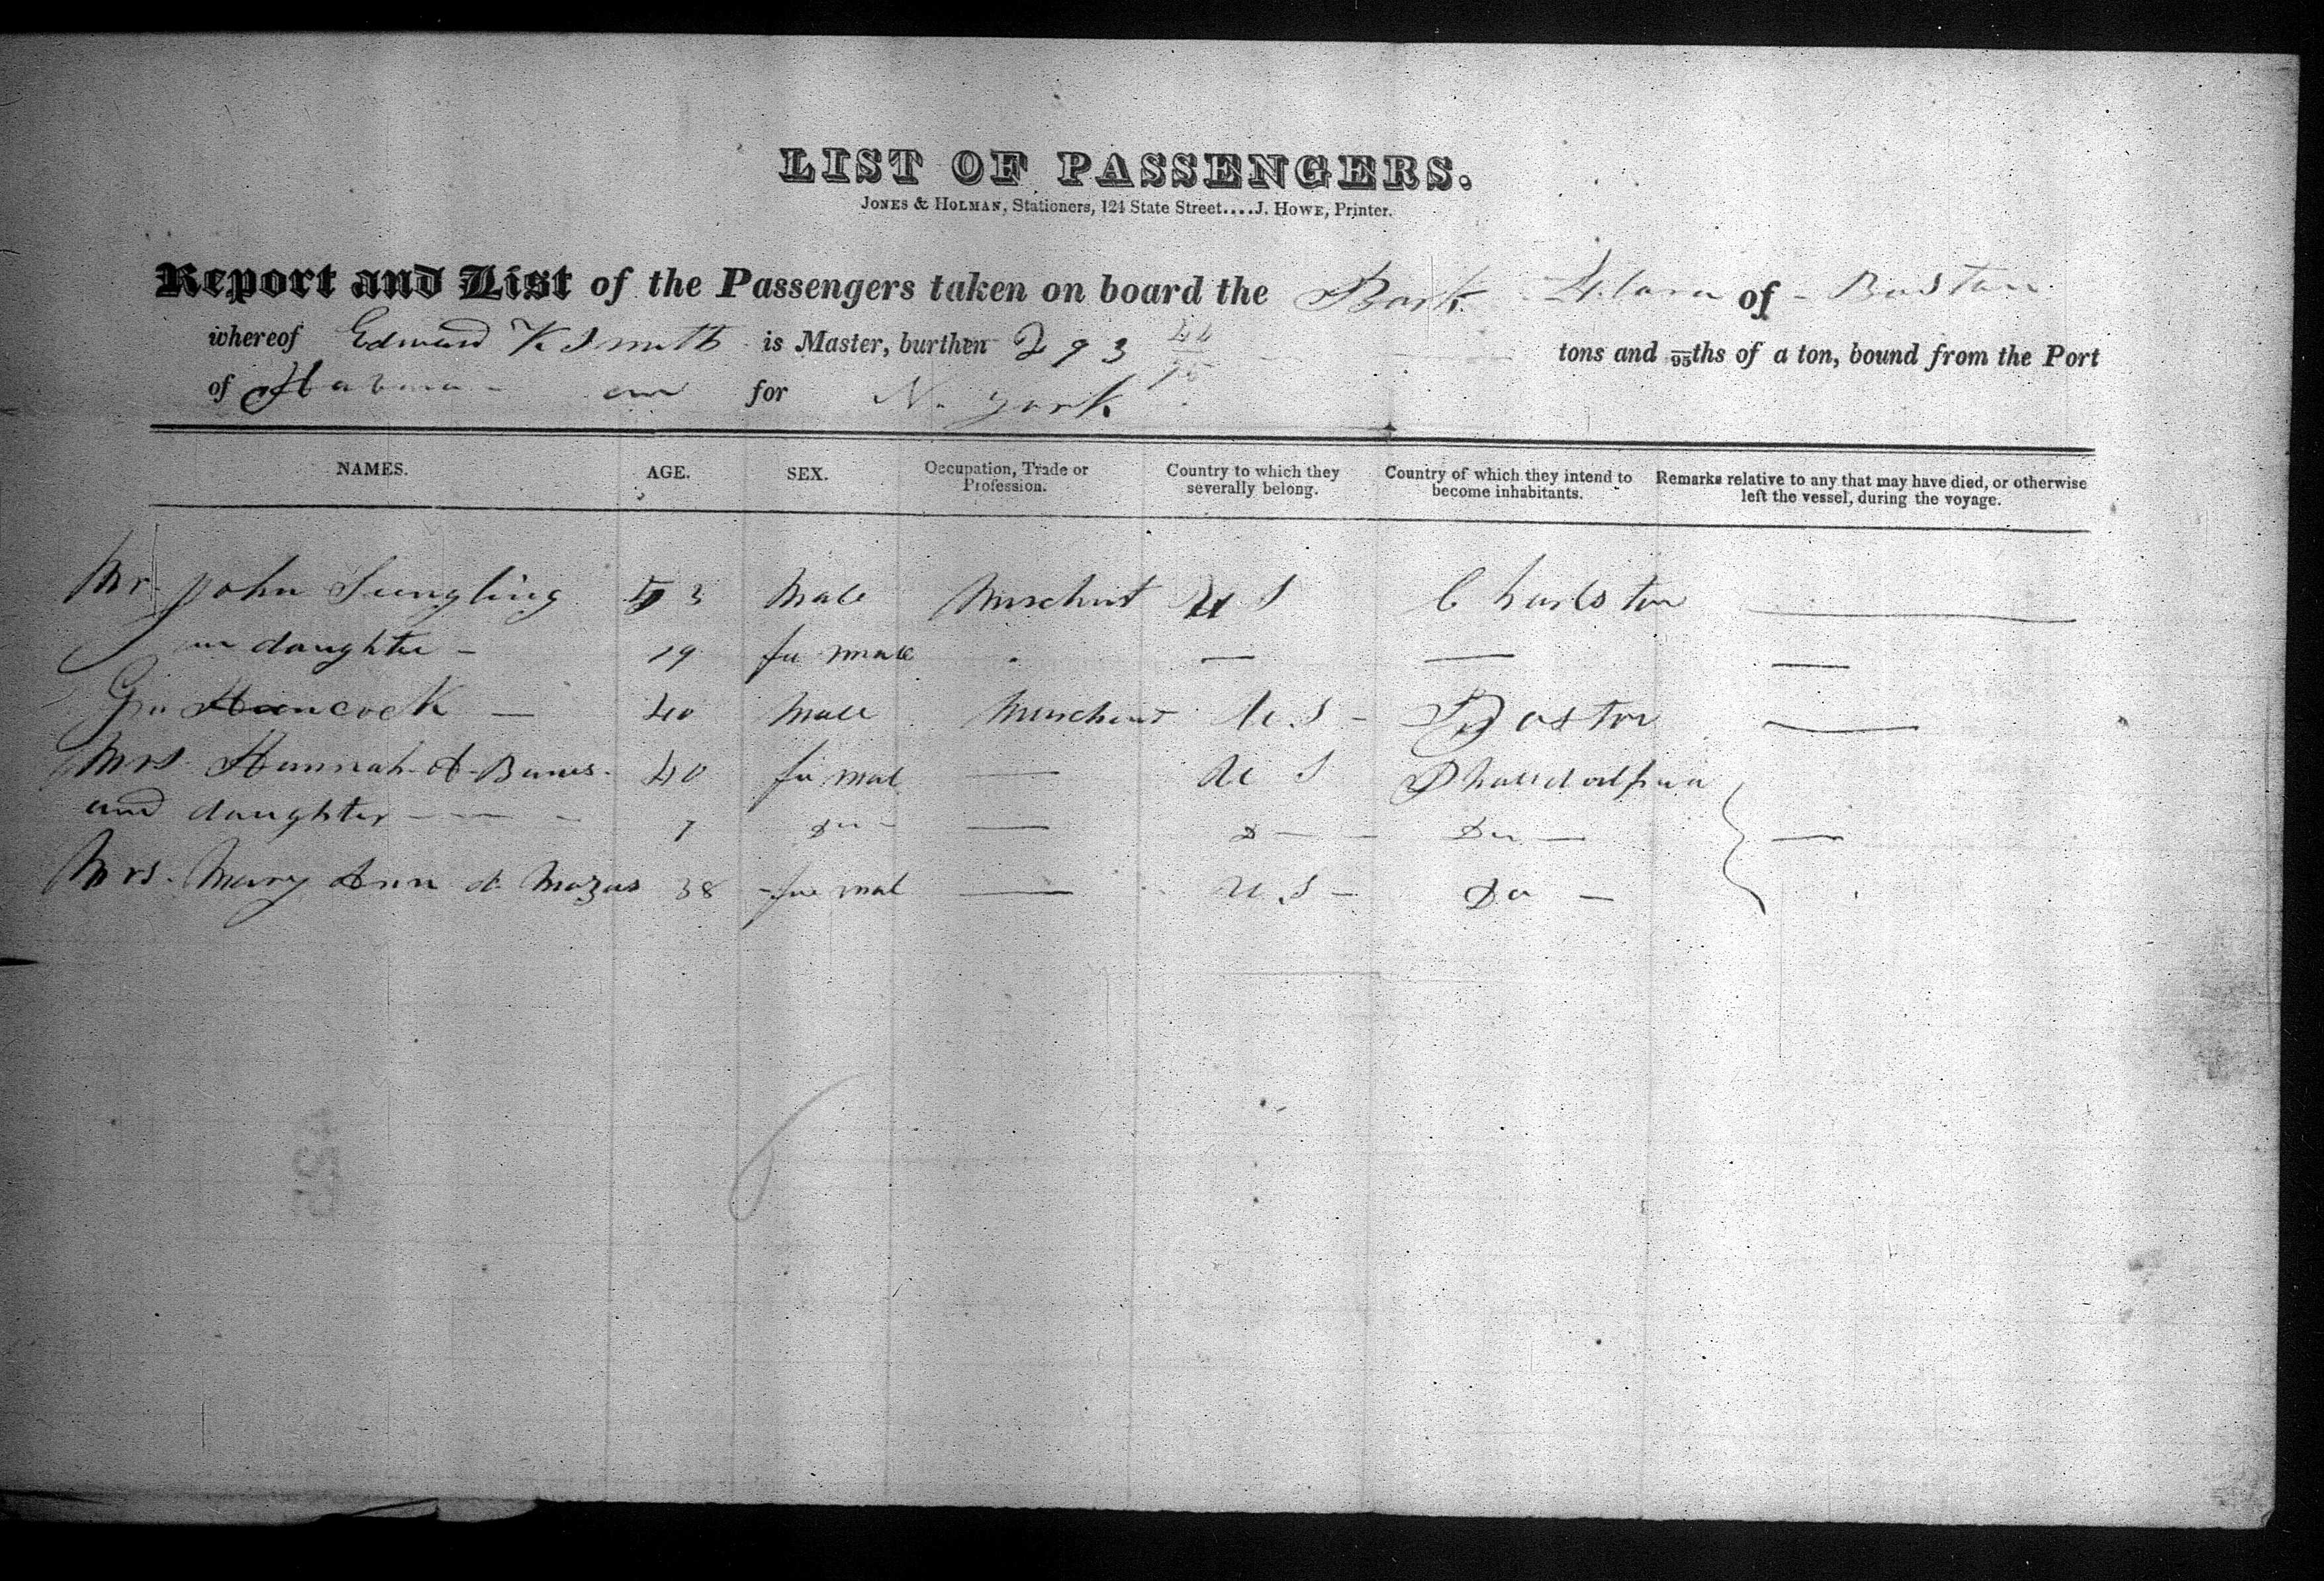 LIST OF PASSENGERS.
JONES & HOLMAN, Stationers, 124 State Street....J. HOWE, Printer.
Report and List of the Passengers taken on board the Bark of Boston
whereof Edward K Smith is Master, burthen 293 44/95 tons and 95ths of a ton, bound from the Port
of Havana for N. York
NAMES. AGE. SEX. Occupation, Trade or Profession. Country to which they severally belong. Country of which they intend to become inhabitants. Remarks relative to any that may have died, or otherwise left the vessel, during the voyage.
Mr. John 53 Male Merchant U S Charlston
daughter - 19 fe male
Hancock — 40 Male Merchant U S - Boston
Mrs. Hannah A 40 fe mal U S
and daughter 7 Do Do
Mrs. Mary Ann 38 fe mal U S Do